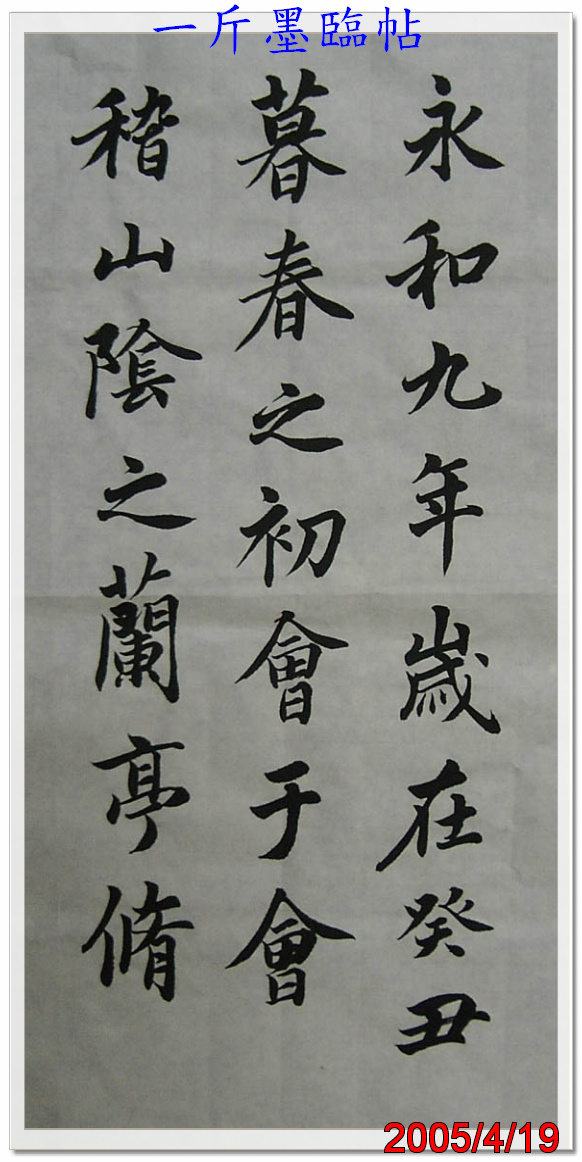 一斤墨臨帖
永和九年歲在癸丑
暮春之初會于會
稽山陰之蘭亭脩
2005/4/19